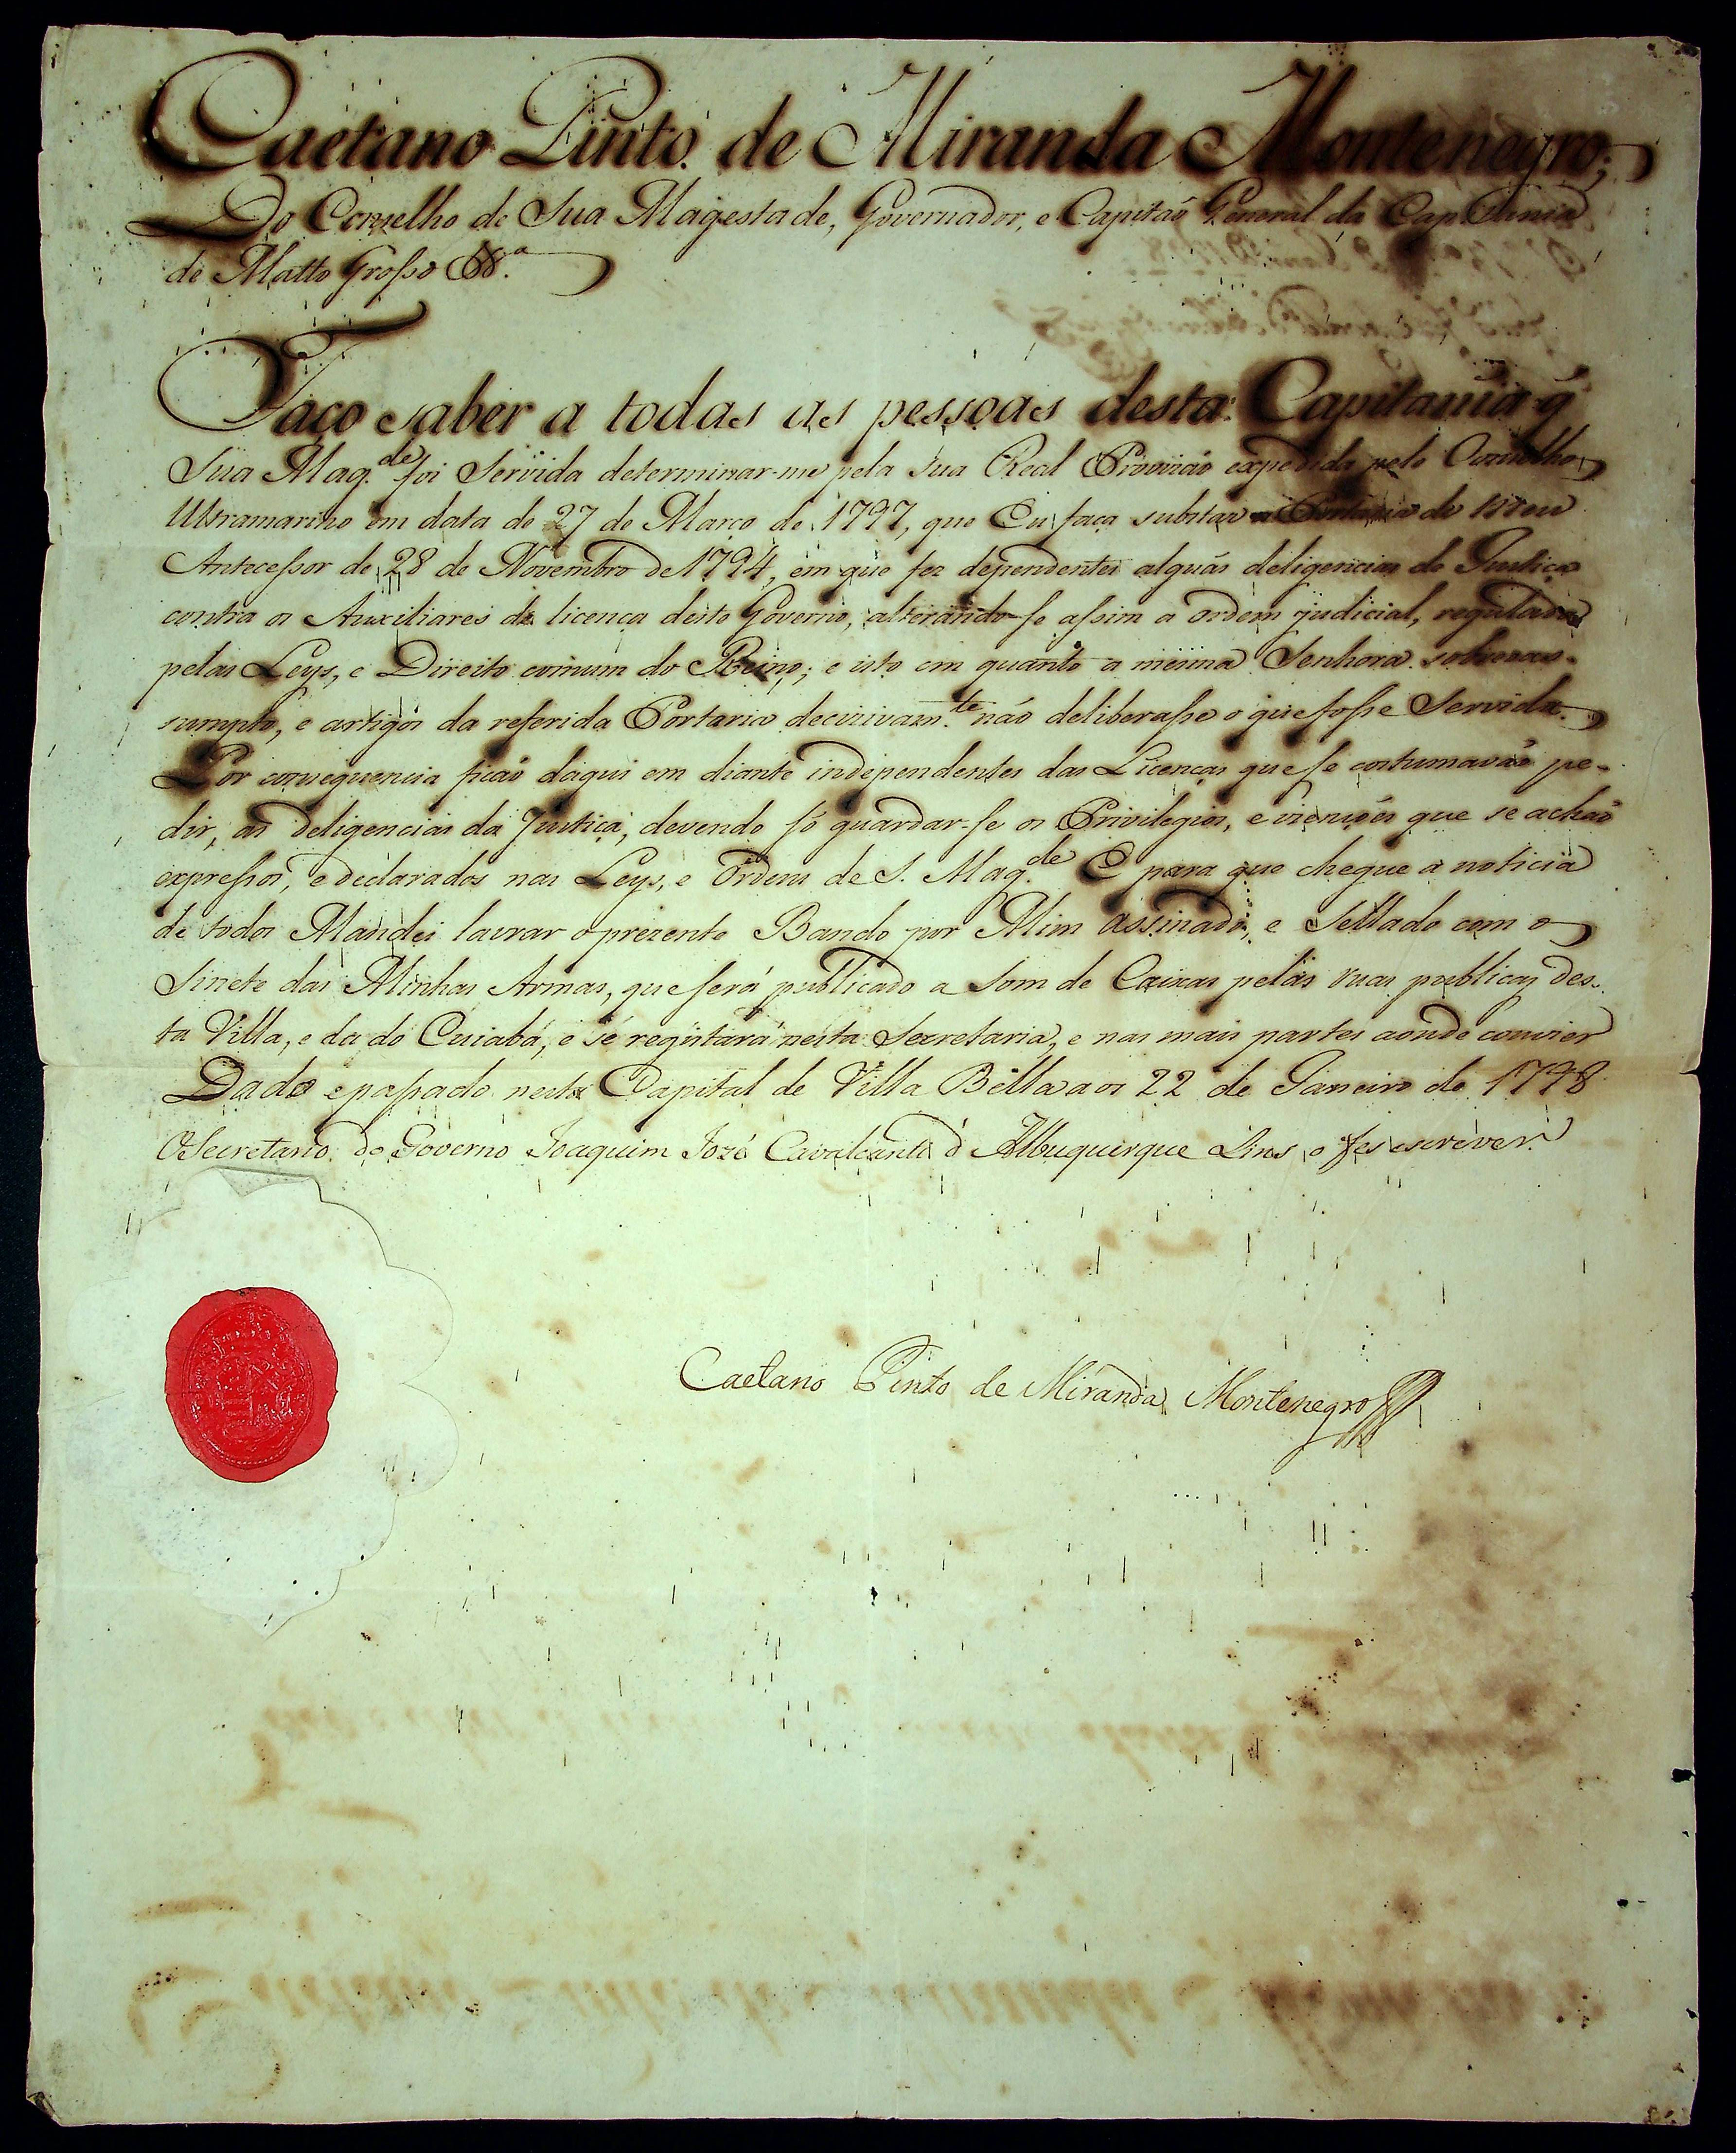 Caetano Pinto de Miranda Montenegro;
Do Conselho de Sua Magestade, Governador, e Capitaõ General da Capitania
de Matto Groſso &&.ª
Faço saber a todas as pessoas desta Capitania q̃
Sua Mag.de foi Servida determinar-me pela sua Real Provizaõ expedida pelo Conselho
Ultramarino em data de 27 de Março de 1797, que Eu faça substar a Portaria do meu
Anteceſsor de 28 de Novembro de 1794, em que fez dependentes alguãs deligencias de Justiça
contra os Auxiliares da licença deste Governo, alterando-se aſsim a ordem judicial, regulada
pelas Leys, e Direito comum do Reino; e isto em quanto a mesma Senhora sobre o as-
sumpto, e artigos da referida Portaria decizivam.te não deliberaſse o que foſse Servida.
Por consequencia ficaõ daqui em diante independentes das Licenças que se costumavaõ pe-
dir, as deligencias da Justiça, devendo só guardar-se os Privilegios, e izençoẽs que se achaõ
expreſsos, e declarados nas Leys, e Ordens de S. Mag.de E para que chegue a noticia
de todos Mandei lavrar o prezente Bando por Mim assinado, e Sellado com o
Sinete das Minhas Armas, que será publicado a som de Caixas pelas ruas publicas des-
ta Villa, e da do Cuiabá, e se registará nesta Secretaria, e nas mais partes aonde convier
Dado e paſsado nesta Capital de Villa Bella aos 22 de Janeiro de 1798
O Secretario do Governo Joaquim Jozé Cavalcanti d'Albuquerque Lins o fes escrever.
Caetano Pinto de Miranda Montenegro